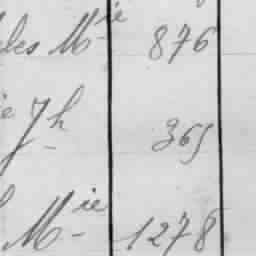 les Mie 876
e Jh 365
Mie 1278